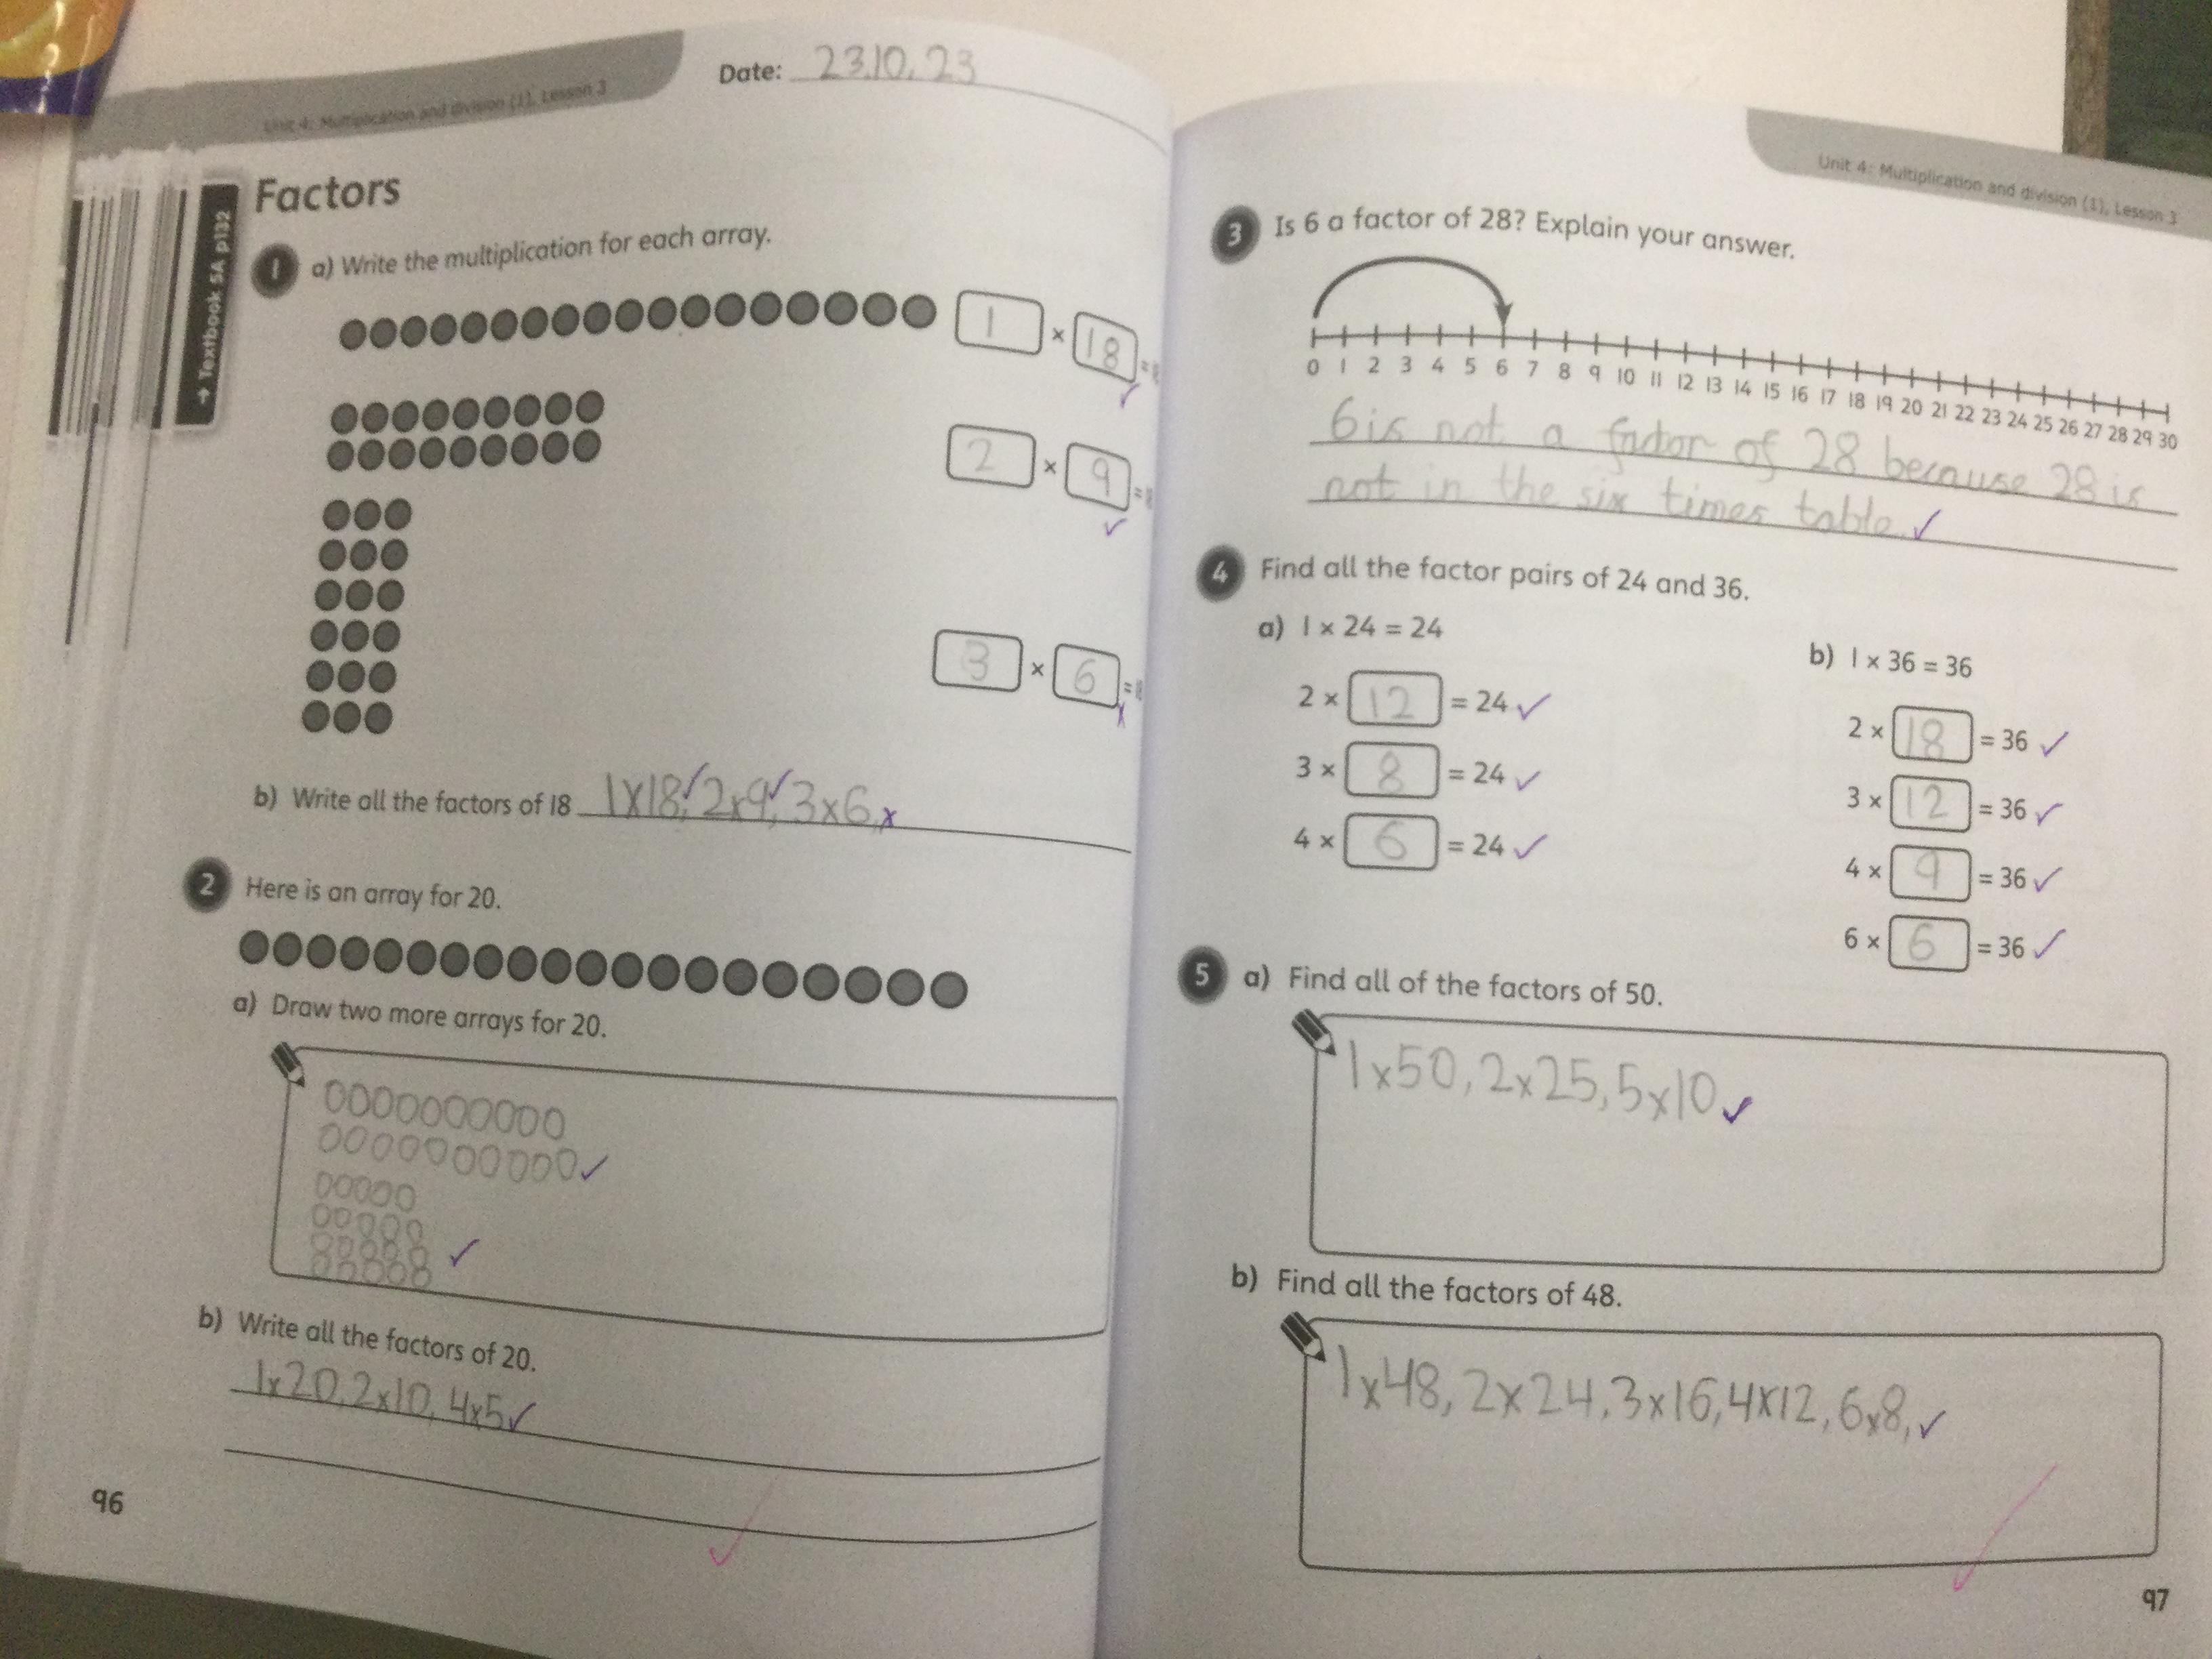 Unit 4: Multiplication and division (1), Lesson 3
Date: 23.10.23
→ Textbook 5A p132
Factors
1 a) Write the multiplication for each array.
1 × 18
2 × 9
3 × 6
b) Write all the factors of 18 1x18, 2x9, 3x6, x
2 Here is an array for 20.
a) Draw two more arrays for 20.
b) Write all the factors of 20.
1x20, 2x10, 4x5
96
Unit 4: Multiplication and division (1), Lesson 3
3 Is 6 a factor of 28? Explain your answer.
0 1 2 3 4 5 6 7 8 9 10 11 12 13 14 15 16 17 18 19 20 21 22 23 24 25 26 27 28 29 30
6 is not a factor of 28 because 28 is
not in the six times table.
4 Find all the factor pairs of 24 and 36.
a) 1 × 24 = 24
2 × 12 = 24
3 × 8 = 24
4 × 6 = 24
b) 1 × 36 = 36
2 × 18 = 36
3 × 12 = 36
4 × 9 = 36
6 × 6 = 36
5 a) Find all of the factors of 50.
1x50, 2x25, 5x10
b) Find all the factors of 48.
1x48, 2x24, 3x16, 4x12, 6x8,
97